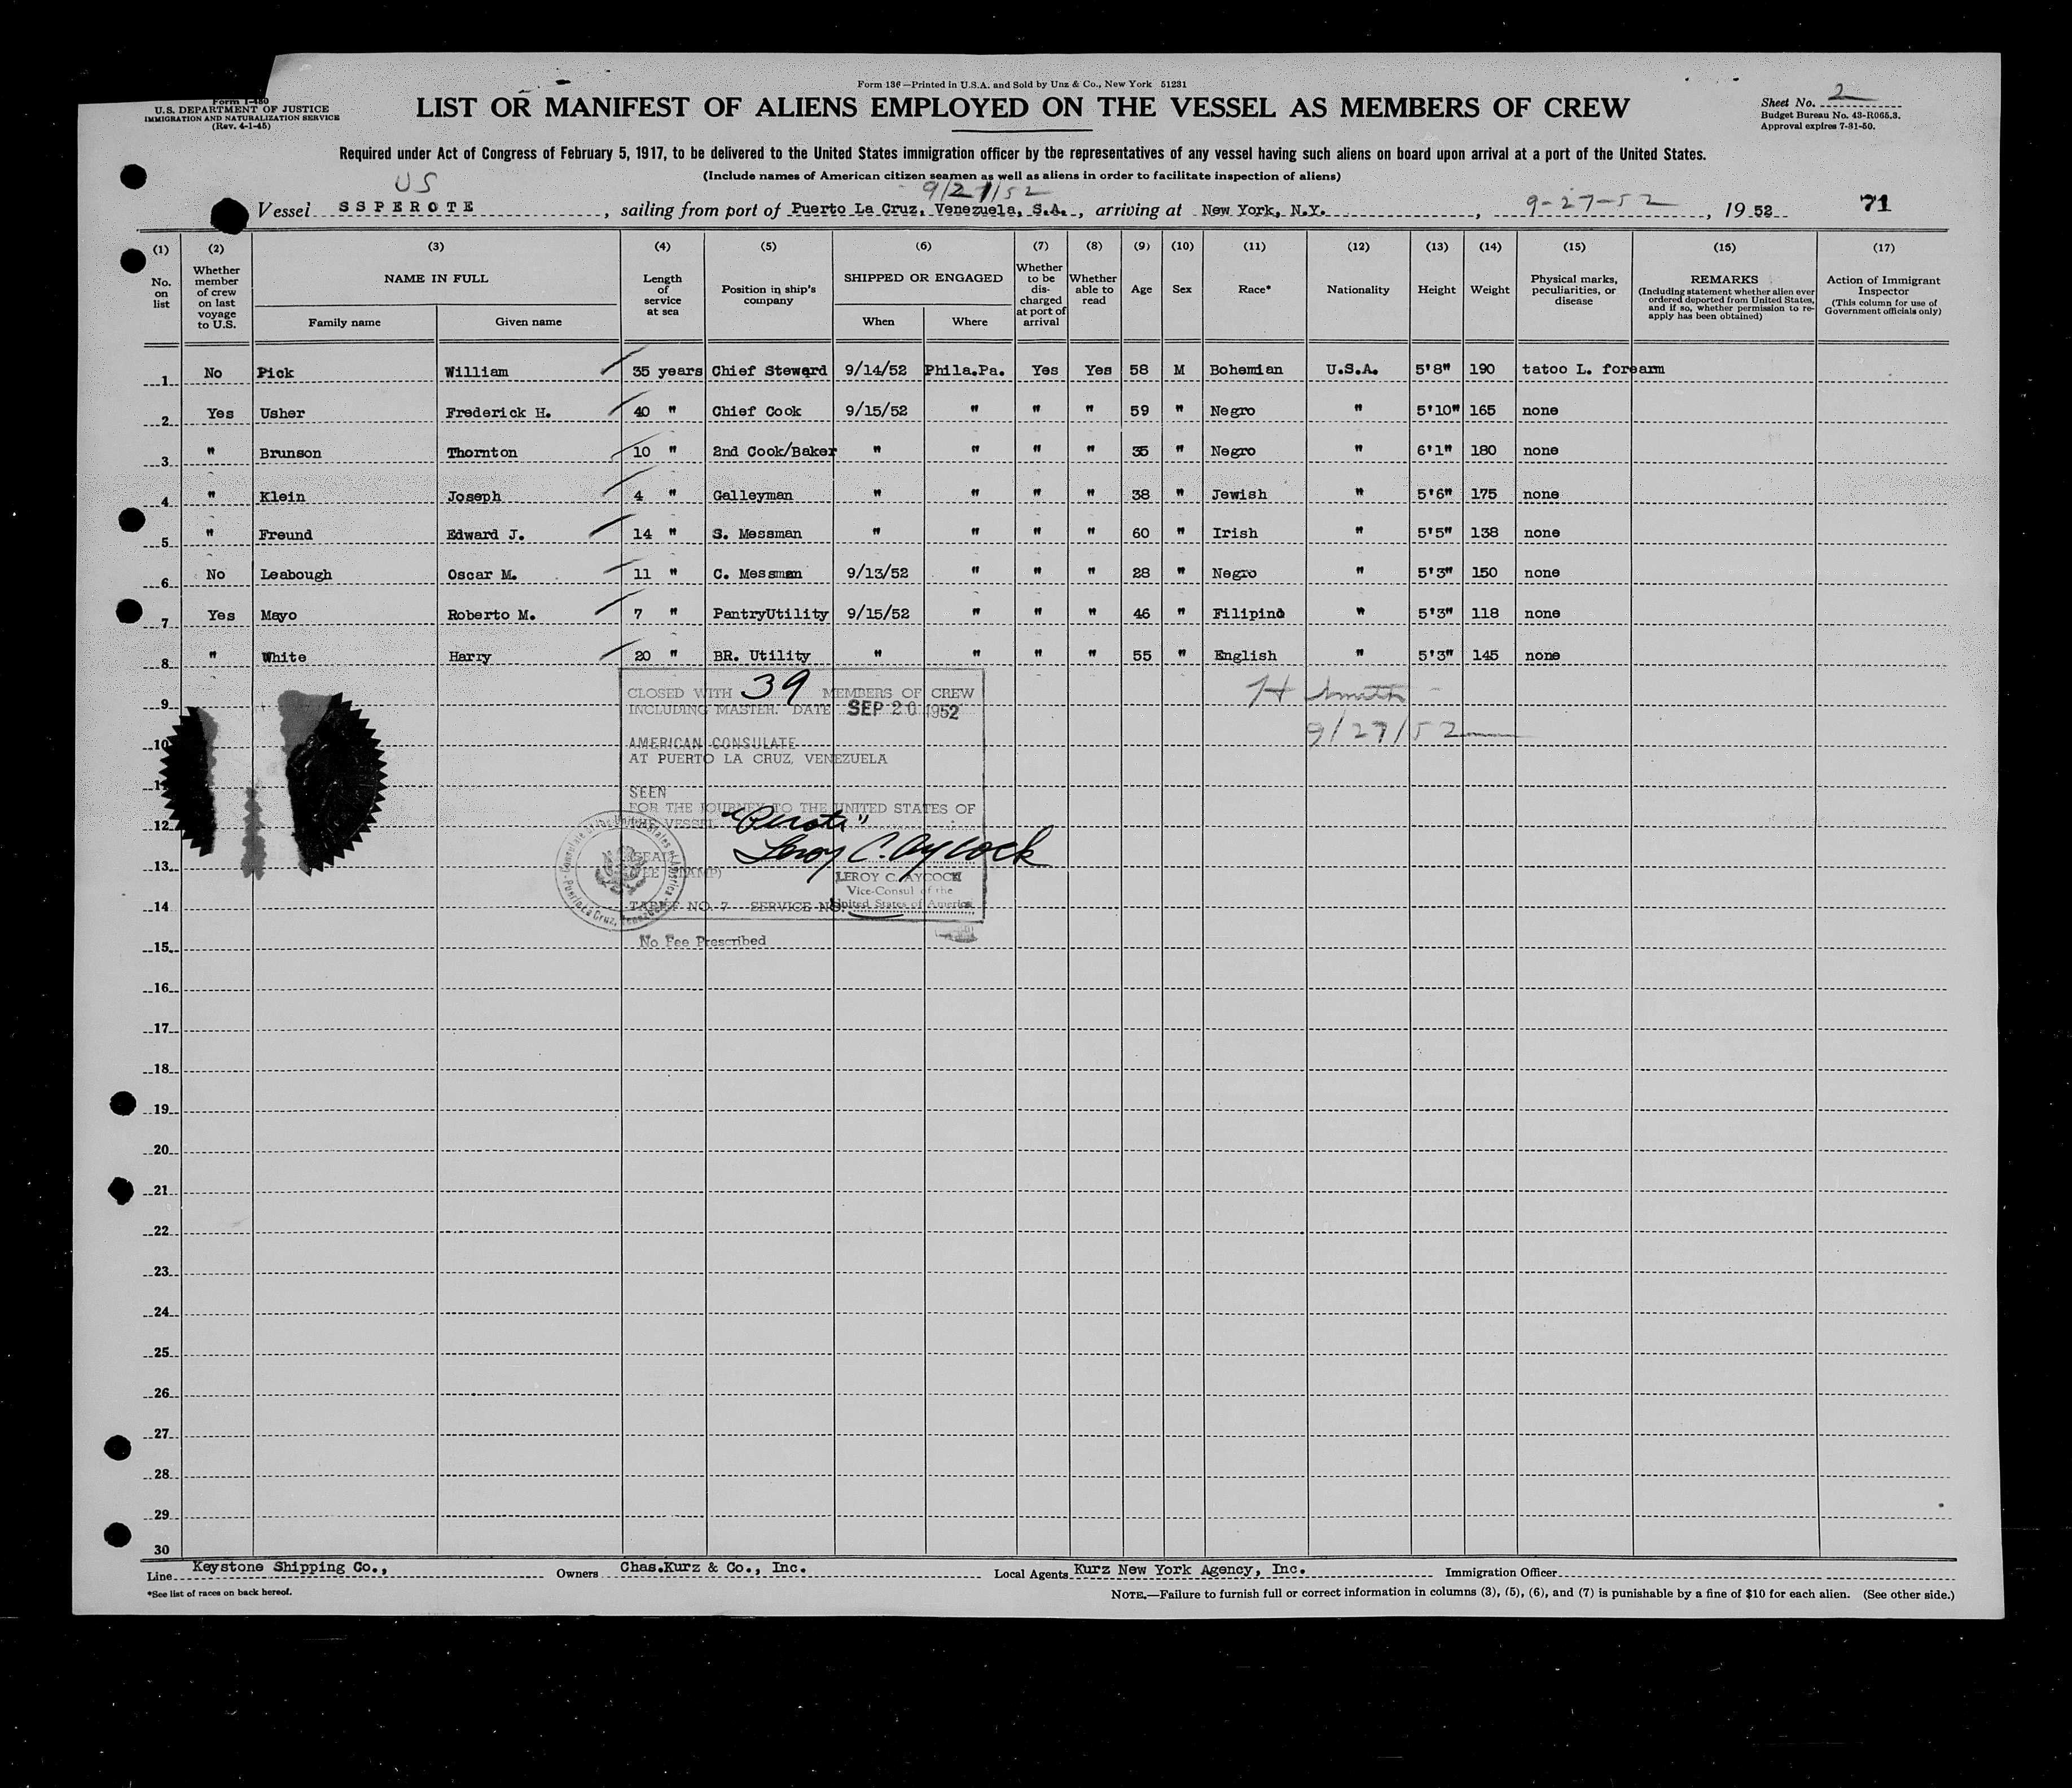 Form 136—Printed in U.S.A. and Sold by Unz & Co., New York 51231
Form I-480
U.S. DEPARTMENT OF JUSTICE
IMMIGRATION AND NATURALIZATION SERVICE
(Rev. 4-1-45)
LIST OR MANIFEST OF ALIENS EMPLOYED ON THE VESSEL AS MEMBERS OF CREW
Sheet No. 2
Budget Bureau No. 43-R065.3.
Approval expires 7-31-50.
Required under Act of Congress of February 5, 1917, to be delivered to the United States immigration officer by the representatives of any vessel having such aliens on board upon arrival at a port of the United States.
(Include names of American citizen seamen as well as aliens in order to facilitate inspection of aliens)
US 9/21/52
Vessel SSPEROTE, sailing from port of Puerto La Cruz, Venezuela, S.A., arriving at New York, N.Y., 9-27-52, 19 52 71
(1) (2) (3) (4) (5) (6) (7) (8) (9) (10) (11) (12) (13) (14) (15) (16) (17)
No. on list
Whether member of crew on last voyage to U.S.
NAME IN FULL
Family name Given name
Length of service at sea
Position in ship's company
SHIPPED OR ENGAGED
When Where
Whether to be discharged at port of arrival
Whether able to read
Age
Sex
Race*
Nationality
Height
Weight
Physical marks, peculiarities, or disease
REMARKS
(Including statement whether alien ever ordered deported from United States, and if so, whether permission to reapply has been obtained)
Action of Immigrant Inspector
(This column for use of Government officials only)
1 No Pick William 35 years Chief Steward 9/14/52 Phila.Pa. Yes Yes 58 M Bohemian U.S.A. 5'8" 190 tatoo L. forearm
2 Yes Usher Frederick H. 40 " Chief Cook 9/15/52 " " " 59 " Negro " 5'10" 165 none
3 " Brunson Thornton 10 " 2nd Cook/Baker " " " " 35 " Negro " 6'1" 180 none
4 " Klein Joseph 4 " Galleyman " " " " 38 " Jewish " 5'6" 175 none
5 " Freund Edward J. 14 " S. Messman " " " " 60 " Irish " 5'5" 138 none
6 No Leabough Oscar M. 11 " C. Messman 9/13/52 " " " 28 " Negro " 5'3" 150 none
7 Yes Mayo Roberto M. 7 " PantryUtility 9/15/52 " " " 46 " Filipino " 5'3" 118 none
8 " White Harry 20 " BR. Utility " " " " 55 " English " 5'3" 145 none
9
10
11
12
13
14
15
16
17
18
19
20
21
22
23
24
25
26
27
28
29
30
CLOSED WITH 39 MEMBERS OF CREW
INCLUDING MASTER. DATE SEP 20 1952
AMERICAN CONSULATE
AT PUERTO LA CRUZ, VENEZUELA
SEEN
FOR THE JOURNEY TO THE UNITED STATES OF
THE VESSEL "Perote"
Leroy C. Aycock
(SEAL)
(FEE STAMP)
LEROY C. AYCOCK
Vice-Consul of the
United States of America
TARIFF NO. 7 SERVICE NO.
No Fee Prescribed
H Smith
9/27/52
Line Keystone Shipping Co., Owners Chas.Kurz & Co., Inc. Local Agents Kurz New York Agency, Inc. Immigration Officer
*See list of races on back hereof.
NOTE.—Failure to furnish full or correct information in columns (3), (5), (6), and (7) is punishable by a fine of $10 for each alien. (See other side.)